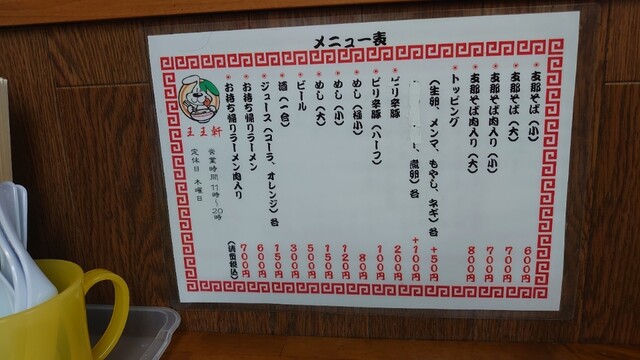 メニュー表
*支那そば(小) 600円
*支那そば(大) 700円
*支那そば肉入り(小) 700円
*支那そば肉入り(大) 800円
*トッピング
(生卵、メンマ、もやし、ネギ)各 +50円
、煮卵)各 +100円
*ピリ辛豚 200円
*ピリ辛豚(ハーフ) 100円
*めし(極小) 80円
*めし(小) 120円
*めし(大) 150円
*ビール 500円
*酒(一合) 300円
*ジュース(コーラ、オレンジ)各 150円
*お持ち帰りラーメン 600円
*お持ち帰りラーメン肉入り 700円
(消費税込)
王王軒
営業時間11時〜20時
定休日 木曜日